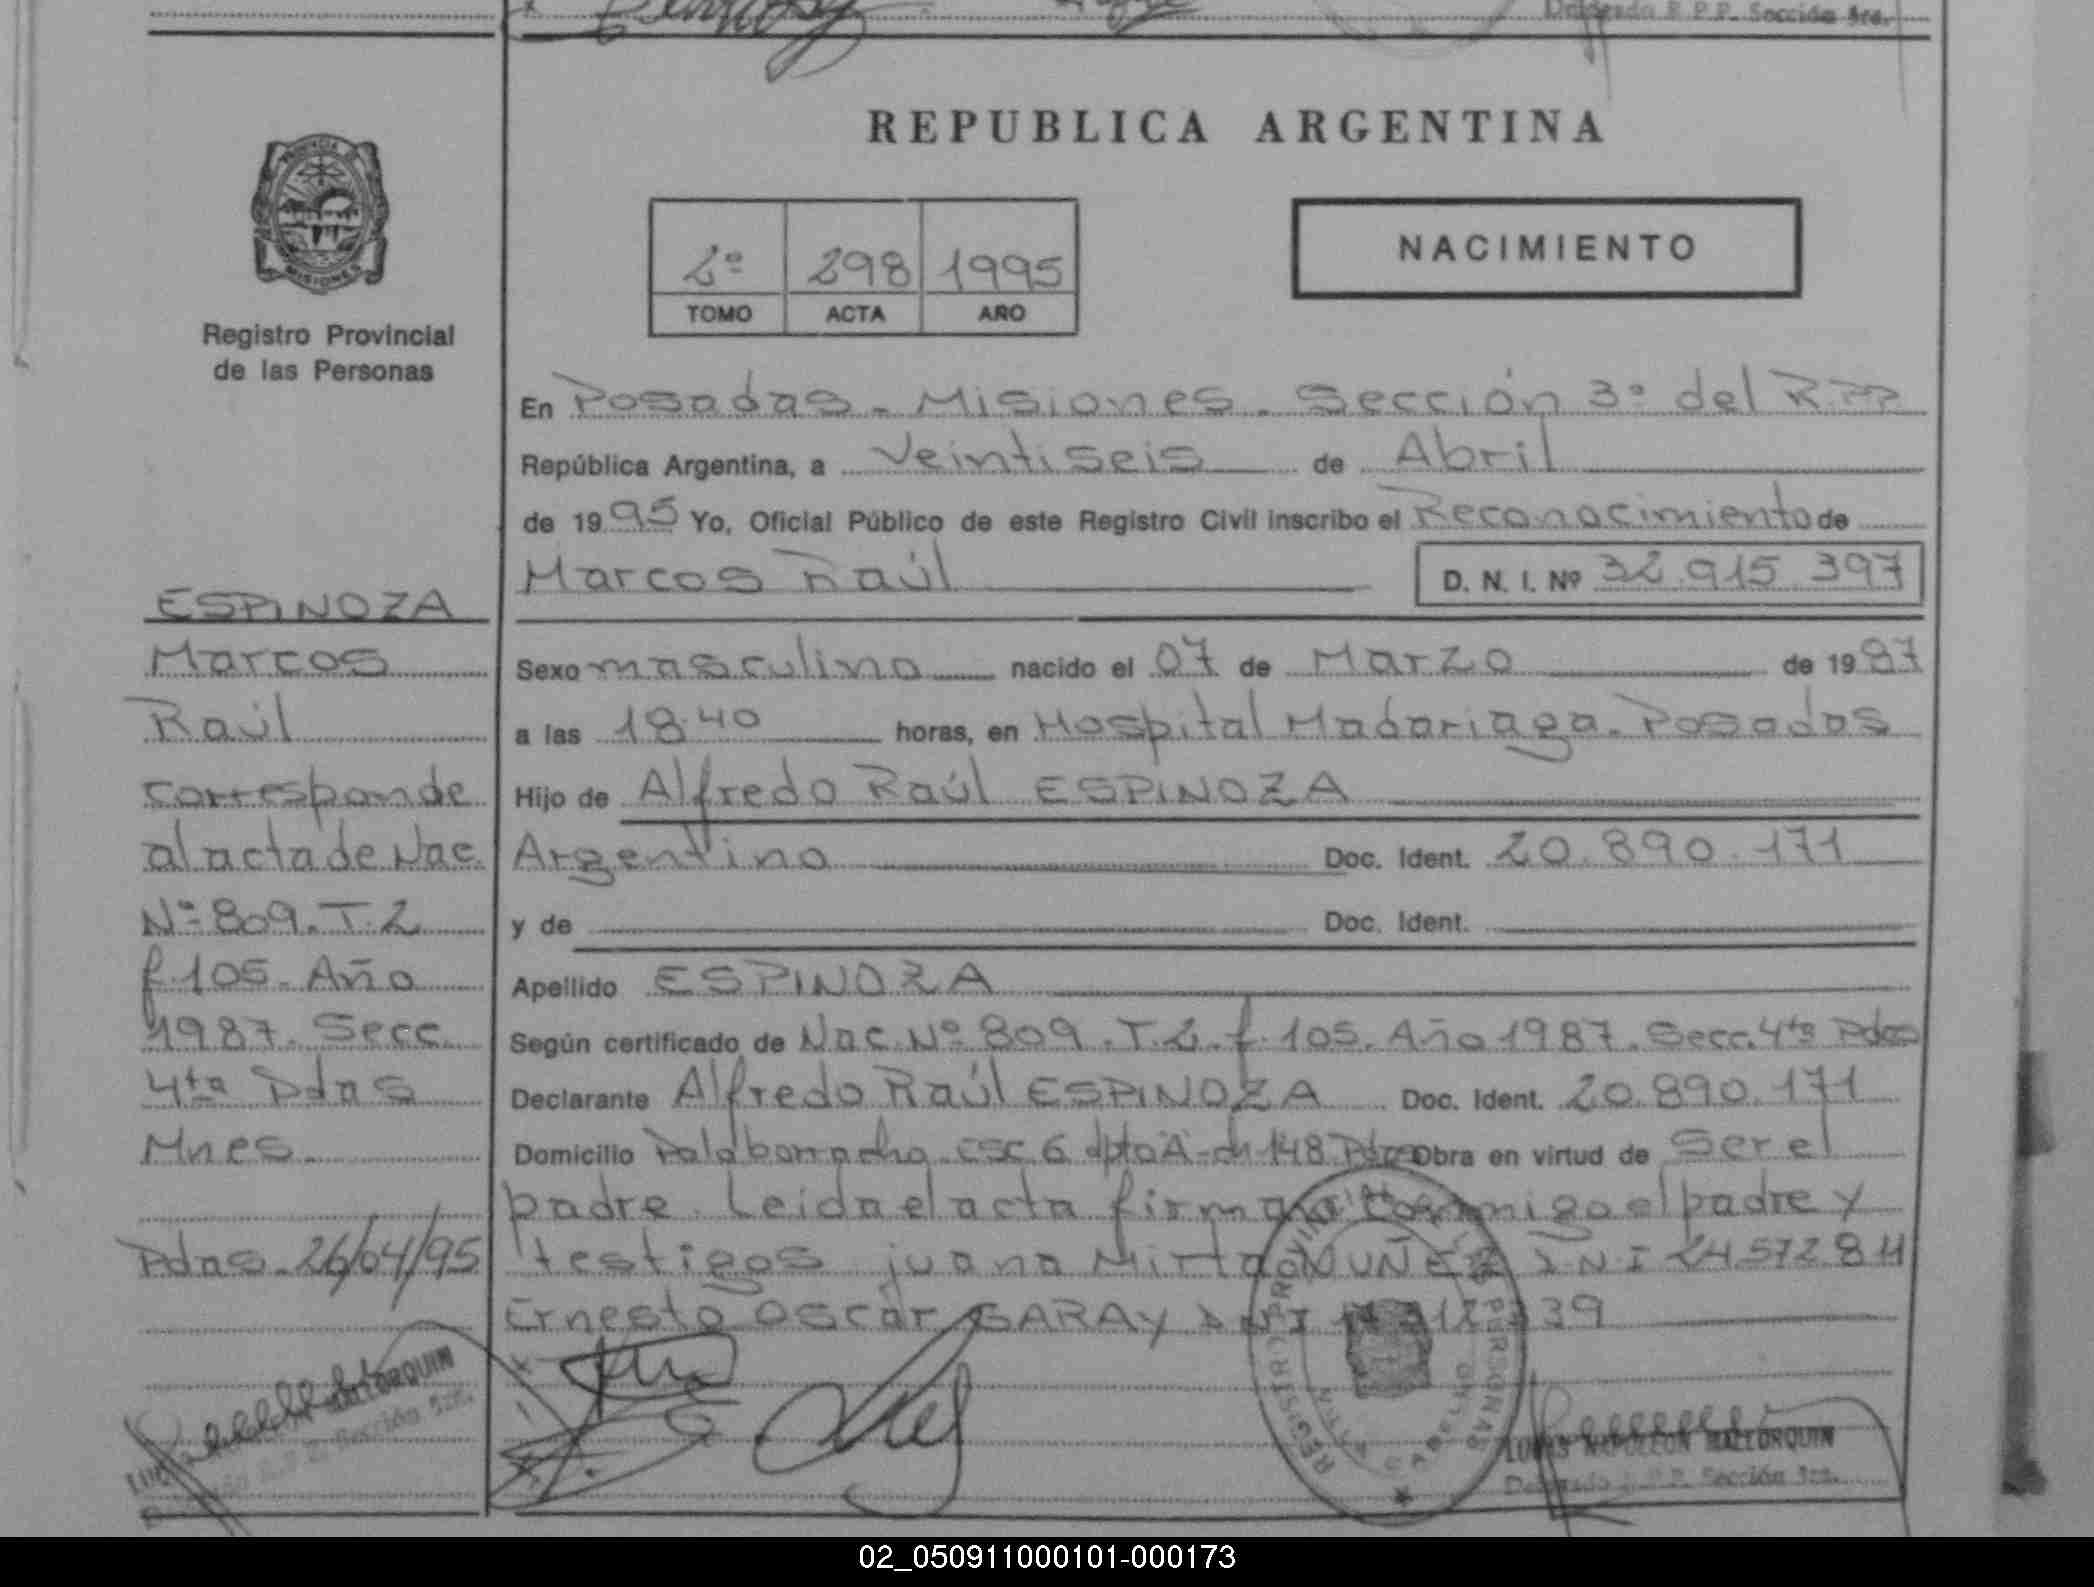 Delegado R.P.P. Sección 3ra.
REPUBLICA ARGENTINA
PROVINCIA DE
MISIONES
Registro Provincial
de las Personas
2º 298 1995
TOMO ACTA AÑO
NACIMIENTO
En Posadas - Misiones - Sección 3º del R.P.P.
República Argentina, a Veintiseis de Abril
de 1995 Yo, Oficial Público de este Registro Civil inscribo el Reconocimiento de
Marcos Raúl D. N. I. Nº 32.915.397
Sexo masculino nacido el 07 de Marzo de 1987
a las 18.40 horas, en Hospital Madariaga. Posadas
Hijo de Alfredo Raúl ESPINOZA
Argentino Doc. Ident. 20.890.171
y de Doc. Ident.
Apellido ESPINOZA
Según certificado de Nac. Nº 809. T. 2. f. 105. Año 1987. Secc. 4ta Pdas
Declarante Alfredo Raúl ESPINOZA Doc. Ident. 20.890.171
Domicilio Palo borracho esc. 6 dpto A - ch 148 Pdas Obra en virtud de Ser el
padre. Leida el acta firman conmigo el padre y
testigos juana Mirta NUÑEZ D.N.I 24572811
Ernesto Oscar GARAY DNI
ESPINOZA
Marcos
Raúl
corresponde
al acta de Nac.
Nº 809. T. 2
f. 105. Año
1987. Secc.
4ta Pdas
Mnes.
Pdas. 26/04/95
MALLORQUIN
Sección 3ra.
REGISTRO PROVINCIAL DE LAS PERSONAS
LOUIS NAPOLEON MALLORQUIN
Delegado R.P.P. Sección 3ra.
02_050911000101-000173